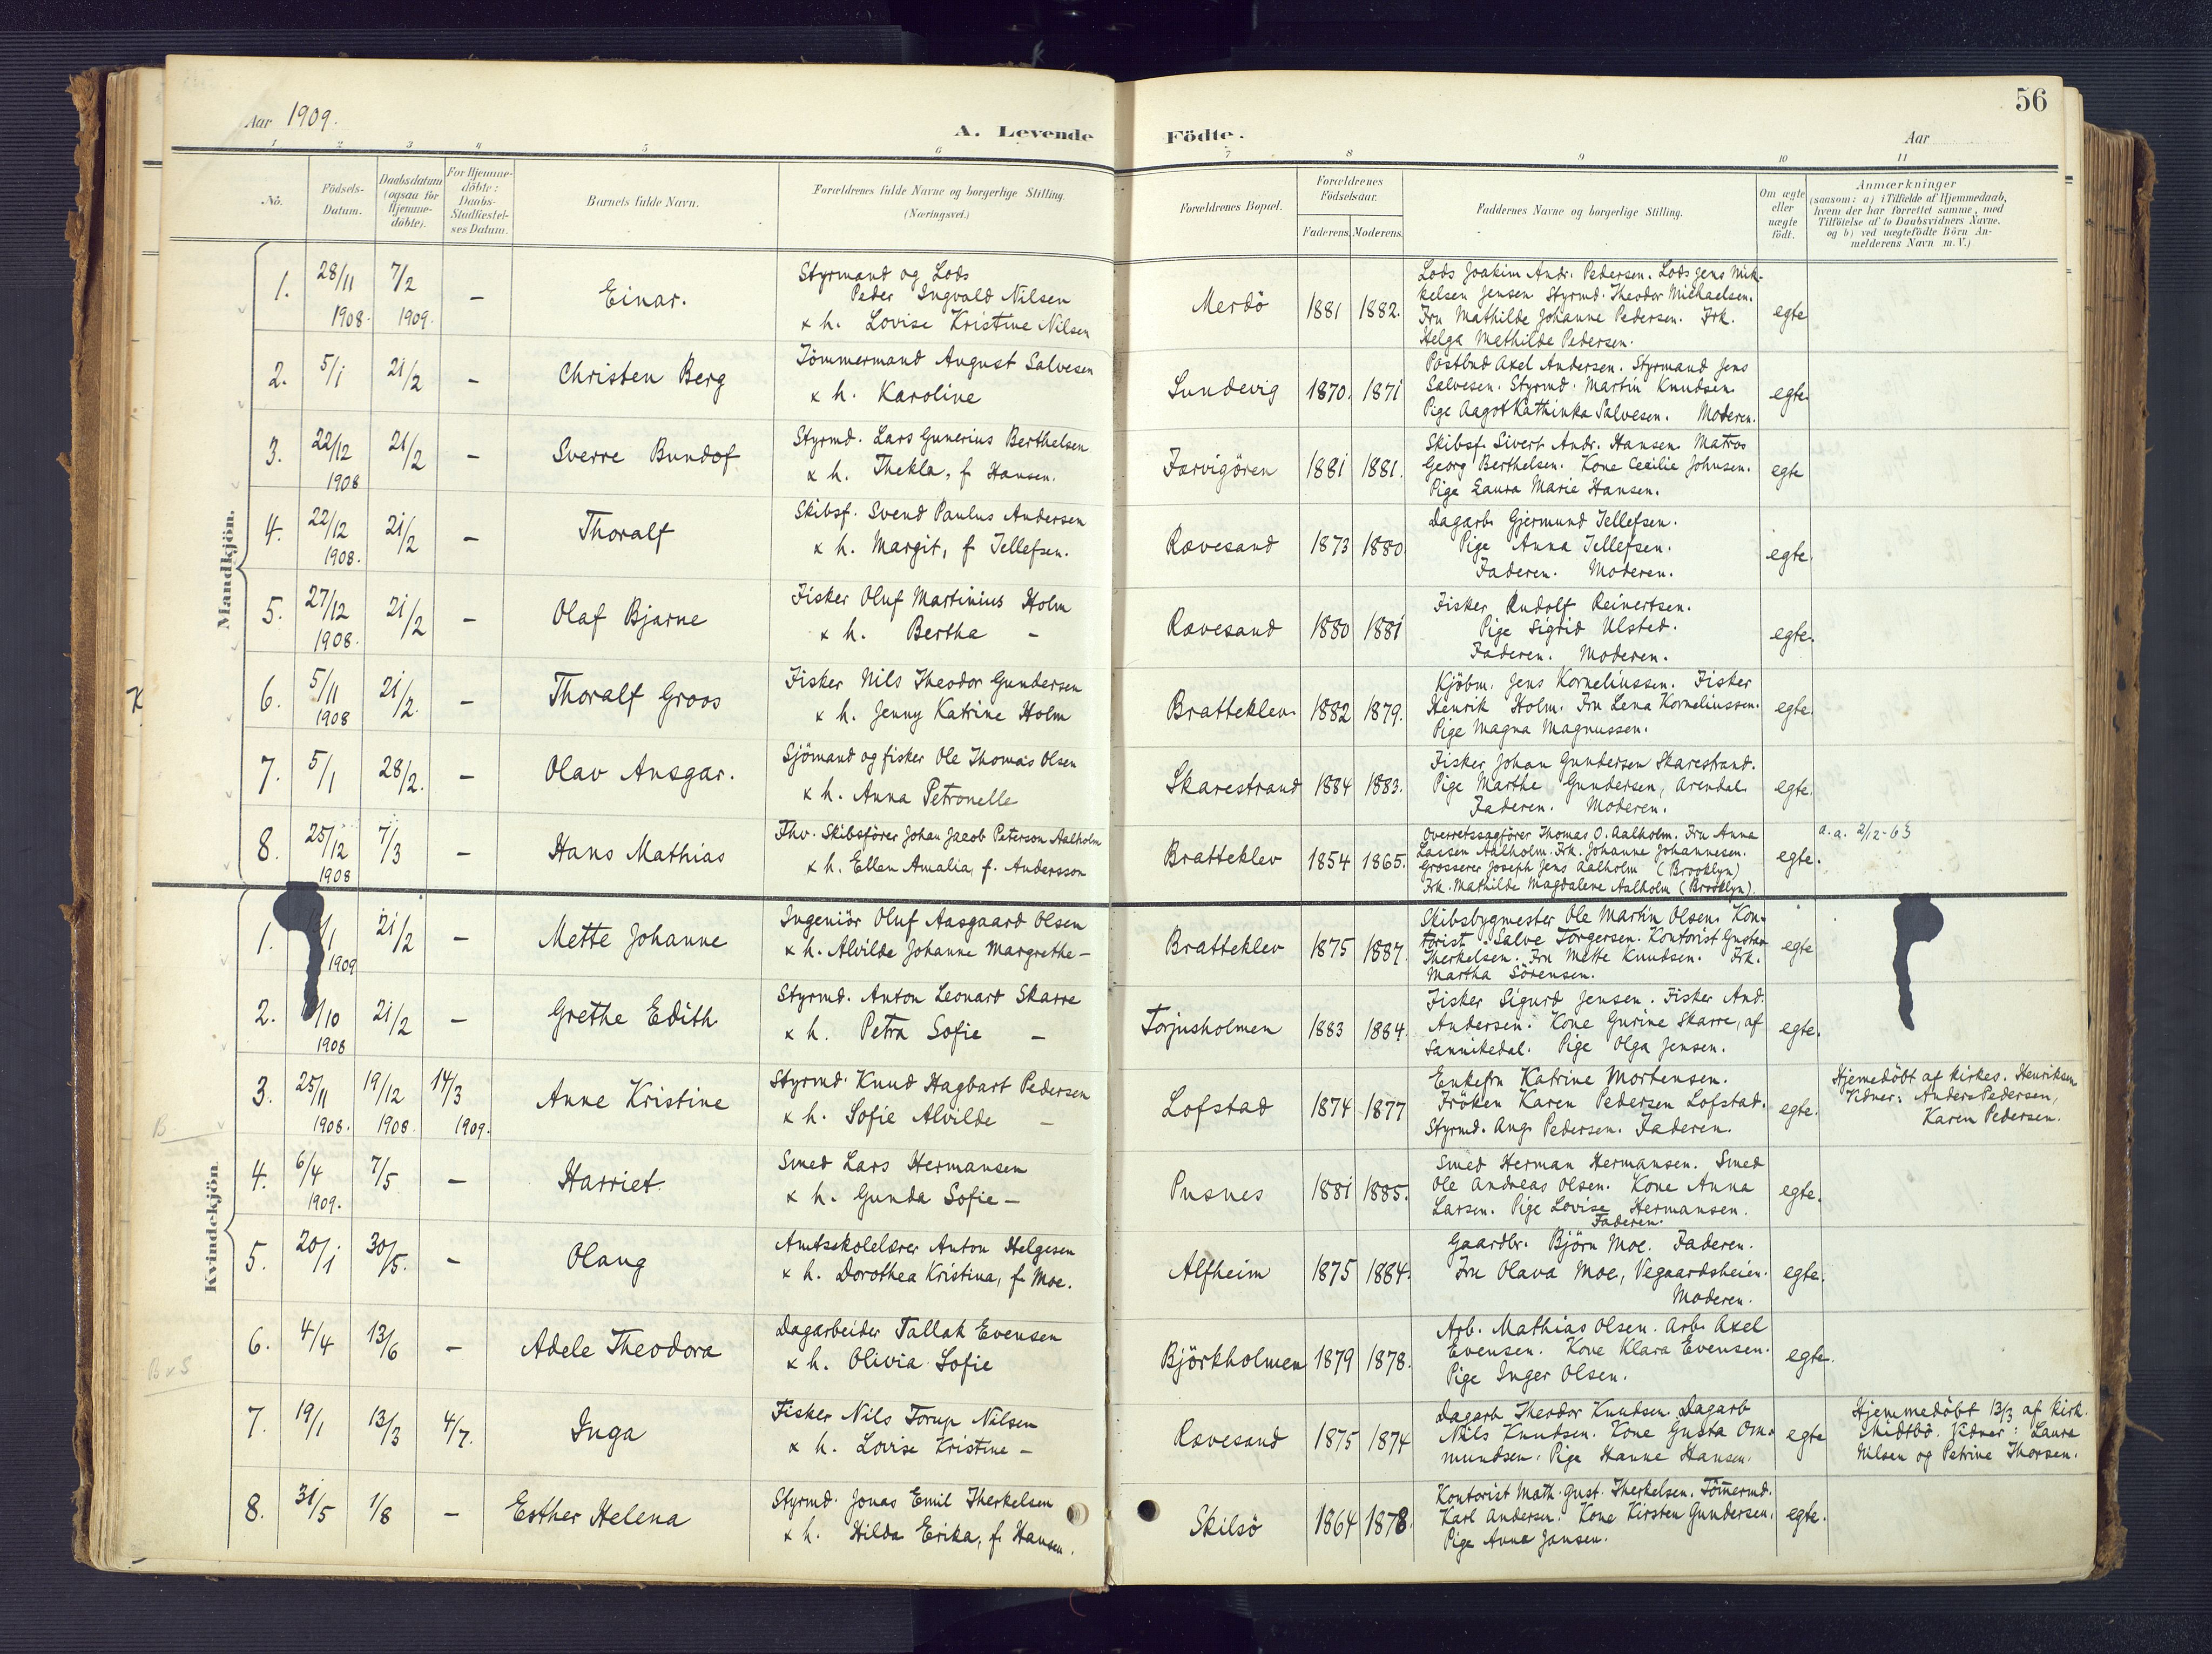 Aar 1909.
A. Levende Födte.
Aar
56
1 2 3 4 5 6 7 8 9 10 11
No.
Födsels-Datum.
Daabsdatum (ogsaa for Hjemme-döbte).
For Hjemme-döbte: Daabs-Stadfæstel-ses Datum.
Barnets fulde Navn.
Forældrenes fulde Navne og borgerlige Stilling. (Næringsvei.)
Forældrenes Bopæl.
Forældrenes Födselsaar.
Faderens. Moderens.
Faddernes Navne og borgerlige Stilling.
Om ægte eller uægte födt.
Anmærkninger
(saasom: a) i Tilfælde af Hjemmedaab,
hvem der har forrettet samme, med
Tilföielse af to Daabsvidners Navne.
og b) ved uægtefödte Börn An-
melderens Navn m. V.)
Mandkjön.
1. 28/11 1908. 7/2 1909. – Einar.
Styrmand og Lods
Peder Ingvald Nilsen
x h. Lovise Kristine Nilsen
Merdö 1881 1882.
Lods Joakim Andr. Pedersen. Lods Jens Mik-
kelsen Jensen Styrmd. Theodor Michaelsen.
Fru Mathilde Johanne Pedersen. Frk.
Helga Mathilde Pedersen.
egte
2. 5/1 21/2 – Christen Berg
Tömmermand August Salvesen
x h. Karoline
Sundevig 1870. 1871
Postbud Axel Andersen. Styrmand Jens
Salvesen. Styrmd. Martin Knudsen.
Pige Aagot Kathinka Salvesen. Moderen.
egte.
3. 22/12 1908 21/2 – Sverre Bundof
Styrmd. Lars Gunerius Berthelsen
x h. Thekla, f. Hansen.
Færvigören 1881 1881.
Skibsf. Sivert Andr. Hansen. Matros
Georg Berthelsen. Kone Cecilie Johnsen.
Pige Laura Marie Hansen.
egte
4. 22/12 1908. 21/2 – Thoralf
Skibsf. Svend Paulus Andersen
x h. Margit, f Tellefsen.
Rævesand 1873 1880.
Dagarb. Gjermund Tellefsen.
Pige Anna Tellefsen.
Faderen. Moderen.
egte.
5. 27/12 1908. 21/2 – Olaf Bjarne
Fisker Oluf Martinius Holm
x h. Bertha –
Rævesand 1880 1881
Fisker Rudolf Reinertsen.
Pige Sigrid Ulsted.
Faderen. Moderen.
egte.
6. 5/11 1908 21/2. – Thoralf Groos
Fisker Nils Theodor Gundersen
x h. Jenny Katrine Holm
Bratteklev. 1882 1879.
Kjöbm. Jens Korneliussen. Fisker
Henrik Holm. Fru Lena Korneliussen.
Pige Magna Magnussen.
egte.
7. 5/1 28/2. – Olav Ansgar.
Sjömand og fisker Ole Thomas Olsen
x h. Anna Petronelle
Skarestrand 1884 1883.
Fisker Johan Gundersen Skarestrand.
Pige Marthe Gundersen, Arendal.
Faderen. Moderen.
egte.
8. 25/12 1908 7/3 – Hans Mathias
Fhv. Skibsförer Johan Jacob Peterson Aalholm
x h. Ellen Amalia, f. Andersson
Bratteklev 1854 1865.
Overretssagförer Thomas O. Aalholm. Fru Anna
Lassen Aalholm. Frk. Johanne Johannesen.
Grosserer Joseph Jens Aalholm (Brooklyn)
Frk. Mathilde Magdalene Aalholm (Brooklyn).
egte.
a.a. 2/12-63
Kvindekjön.
1. /1 1909 21/2 – Mette Johanne
Ingeniör Oluf Aasgaard Olsen
x h. Alvilde Johanne Margrethe –
Bratteklev 1875 1887.
Skibsbygmester Ole Martin Olsen. Kon-
torist Salve Torgersen. Kontorist Gustav
Therkelsen. Fru Mette Knudsen. Frk.
Martha Sörensen.
egte
2. /10 1908 21/2 – Grethe Edith
Styrmd. Anton Leonard Skarre
x h. Petra Sofie –
Torjusholmen 1883 1884.
Fisker Sigurd Jensen. Fisker And.
Andersen. Kone Gurine Skarre, af
Sannikedal. Pige Olga Jensen.
egte.
3. 25/11 1908. 19/12 1908 14/3 1909. Anne Kristine
Styrmd. Knud Hagbart Pedersen
x h. Sofie Alvilde –
Lofstad 1874 1877
Enkefru Katrine Mortensen.
Fröken Karen Pedersen Lofstad.
Styrmd. Aug. Pedersen. Faderen.
egte.
Hjemedöbt af kirkes. Henriksen
Vidner: Anders Pedersen,
Karen Pedersen.
4. 6/4 1909. 7/5 – Harriet
Smed Lars Hermansen
x h. Gunda Sofie –
Pusnes 1881 1885.
Smed Herman Hermansen. Smed
Ole Andreas Olsen. Kone Anna
Larsen. Pige Lovise Hermansen.
Faderen.
egte.
5. 20/1 30/5. – Olaug
Amtskolelærer Anton Helgesen
x h. Dorothea Kristina, f. Moe.
Alfheim 1875 1884.
Gaardbr. Björn Moe. Faderen.
Fru Olava Moe, Vegaardsheien.
Moderen.
egte.
6. 4/4 13/6 – Adele Theodora
Dagarbeider Tallak Evensen
x h. Olivia Sofie
Björkholmen 1879 1878.
Arb. Mathias Olsen. Arb. Axel
Evensen. Kone Klara Evensen.
Pige Inger Olsen.
egte.
7. 19/1 13/3 4/7. Inga
Fisker Nils Torup Nilsen
x h. Lovise Kristine –
Rævesand 1875 1874
Dagarb Theodor Knudsen. Dagarb
Nils Knudsen. Kone Gusta Om-
mundsen. Pige Hanne Hansen.
egte
Hjemmedöbt 13/3 af kirk.
Midtbö. Vidner: Laura
Nilsen og Petrine Thorsen.
8. 31/5 1/8 – Esther Helena
Styrmd. Jonas Emil Therkelsen
x h. Hilda Erika, f. Hansen.
Skilsö 1864 1878.
Kontorist Math. Gust. Therkelsen. Tömermd.
Karl Andersen. Kone Kirsten Gundersen.
Pige Anna Jansen.
egte.
K
B
B x S